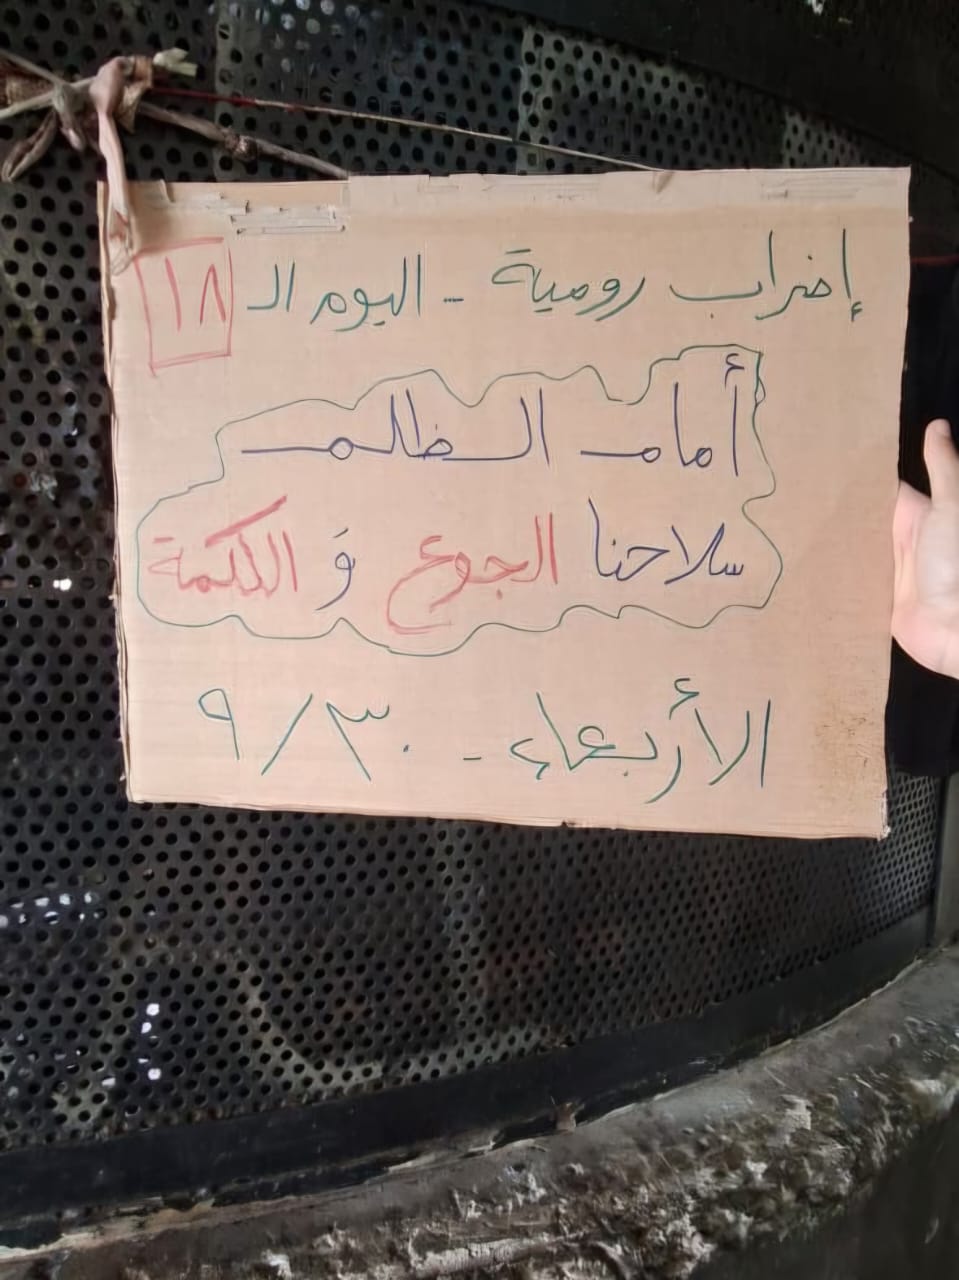 إضراب رومية - اليوم الـ ١٨
أمام الظلم
سلاحنا الجوع وَ الكلمة
الأربعاء - ٩/٣٠